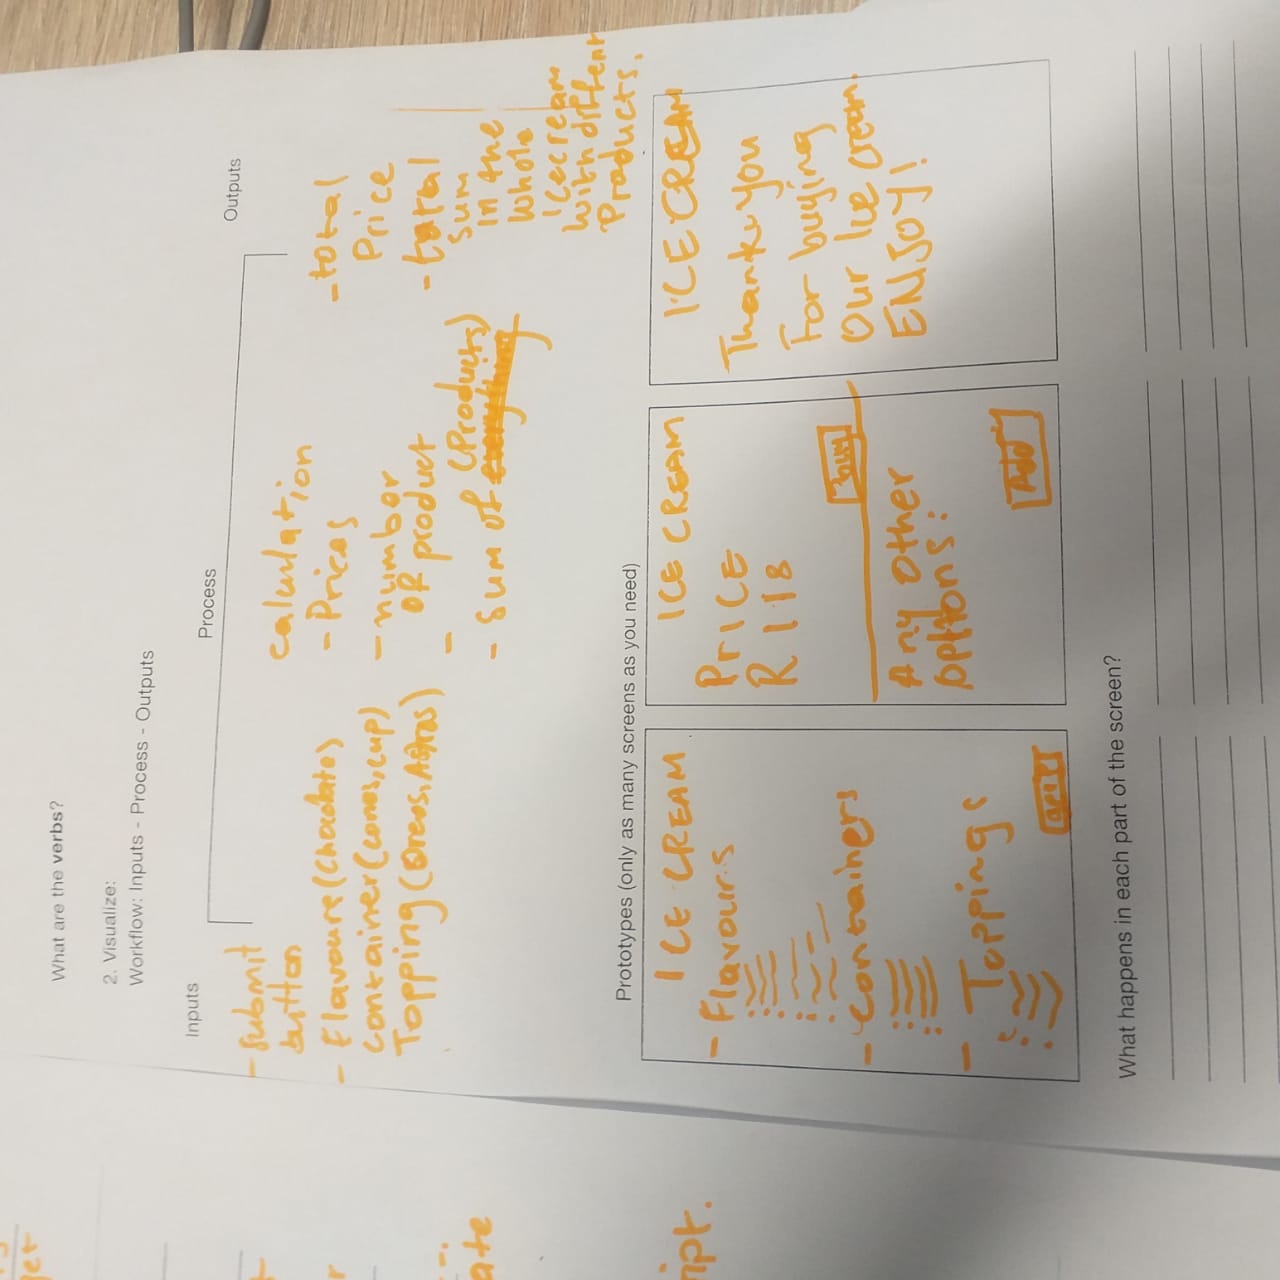 What are the verbs?
2. Visualize:
Workflow: Inputs - Process - Outputs
Inputs
- Submit
button
- flavoure (chocolates
container (cones, cup)
Topping (Oreos,
Process
calculation
- Prices
- number
of product
-
- sum of (Products)
Outputs
- total
Price
- total
sum
in the
whole
icecream
with different
Products.
Prototypes (only as many screens as you need)
ICE CREAM
- Flavours
- containers
- Toppings
ICE CREAM
PRICE
R 118
Buy
Any other
options:
Add
ICE CREAM
Thank you
For buying
Our Ice cream.
ENJOY!
What happens in each part of the screen?
get
ate
ipt.